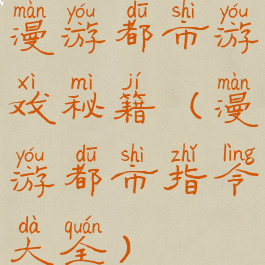 màn yóu dū shì yóu
漫游都市游
xì mì jí màn
戏秘籍（漫
yóu dū shì zhǐ lìng
游都市指令
dà quán
大全）